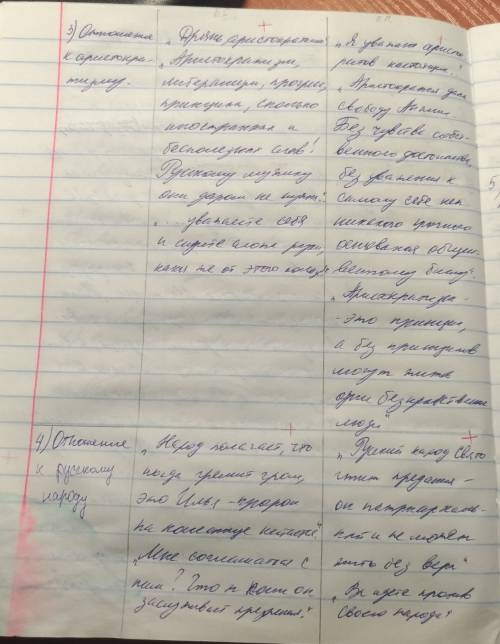 3) Отношение
к аристокра-
тизму.
„Дрянь, аристократишко"
„Аристократизм,
либерализм, прогресс,
принципы, сколько
иностранных и
бесполезных слов!
Русскому мужику
они даром не нужны."
„...уважаете себя
и сидите сложа руки,
какая же от этого польза"
„Я уважаю аристо
кратов настоящих."
„Аристократия дала
свободу Англии
Без чувства собст-
венного достоинства,
без уважения к
самому себе нет
никакого прочного
основания общест-
венному благу"
„Аристократизм-
-это принцип,
а без принципов
могут жить
одни безнравственные
люди
4) Отношение
к русскому
народу
„Народ полагает, что
когда гремит гром,
это Илья-пророк
на колеснице катает"
„Мне соглашаться с
ним? Что ж коли он
заслуживает презрения."
„Русский народ свято
чтит предания-
он патриархаль-
ный и не может
жить без веры"
„Вы идёте против
своего народа"
5)